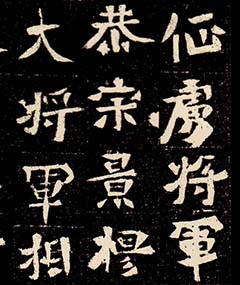 征虜将軍
恭宗景穆
大将軍相